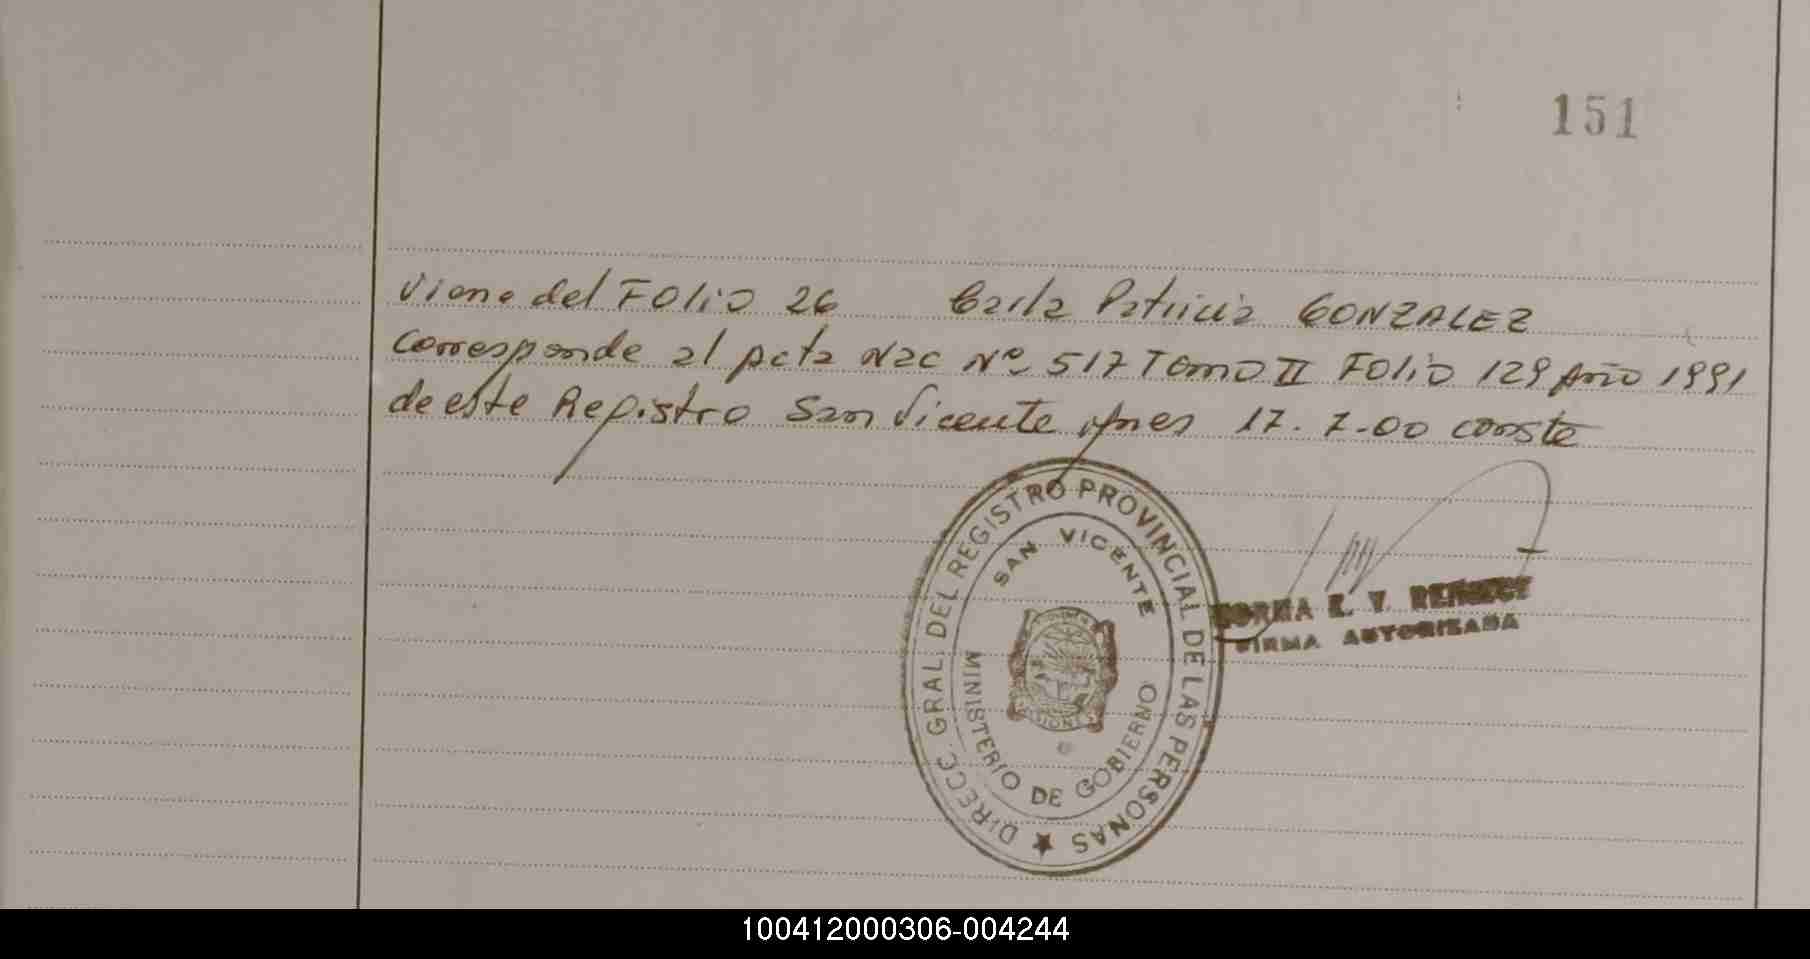 151
Viene del Folio 26 Carla Patricia GONZALEZ
Corresponde al Acta Nac Nº 517 Tomo II Folio 129 Año 1991
de este Registro San Vicente Mnes 17.7.00 conste
DIRECC. GRAL. DEL REGISTRO PROVINCIAL DE LAS PERSONAS
SAN VICENTE
MINISTERIO DE GOBIERNO
NORMA E. V.
FIRMA AUTORIZADA
100412000306-004244